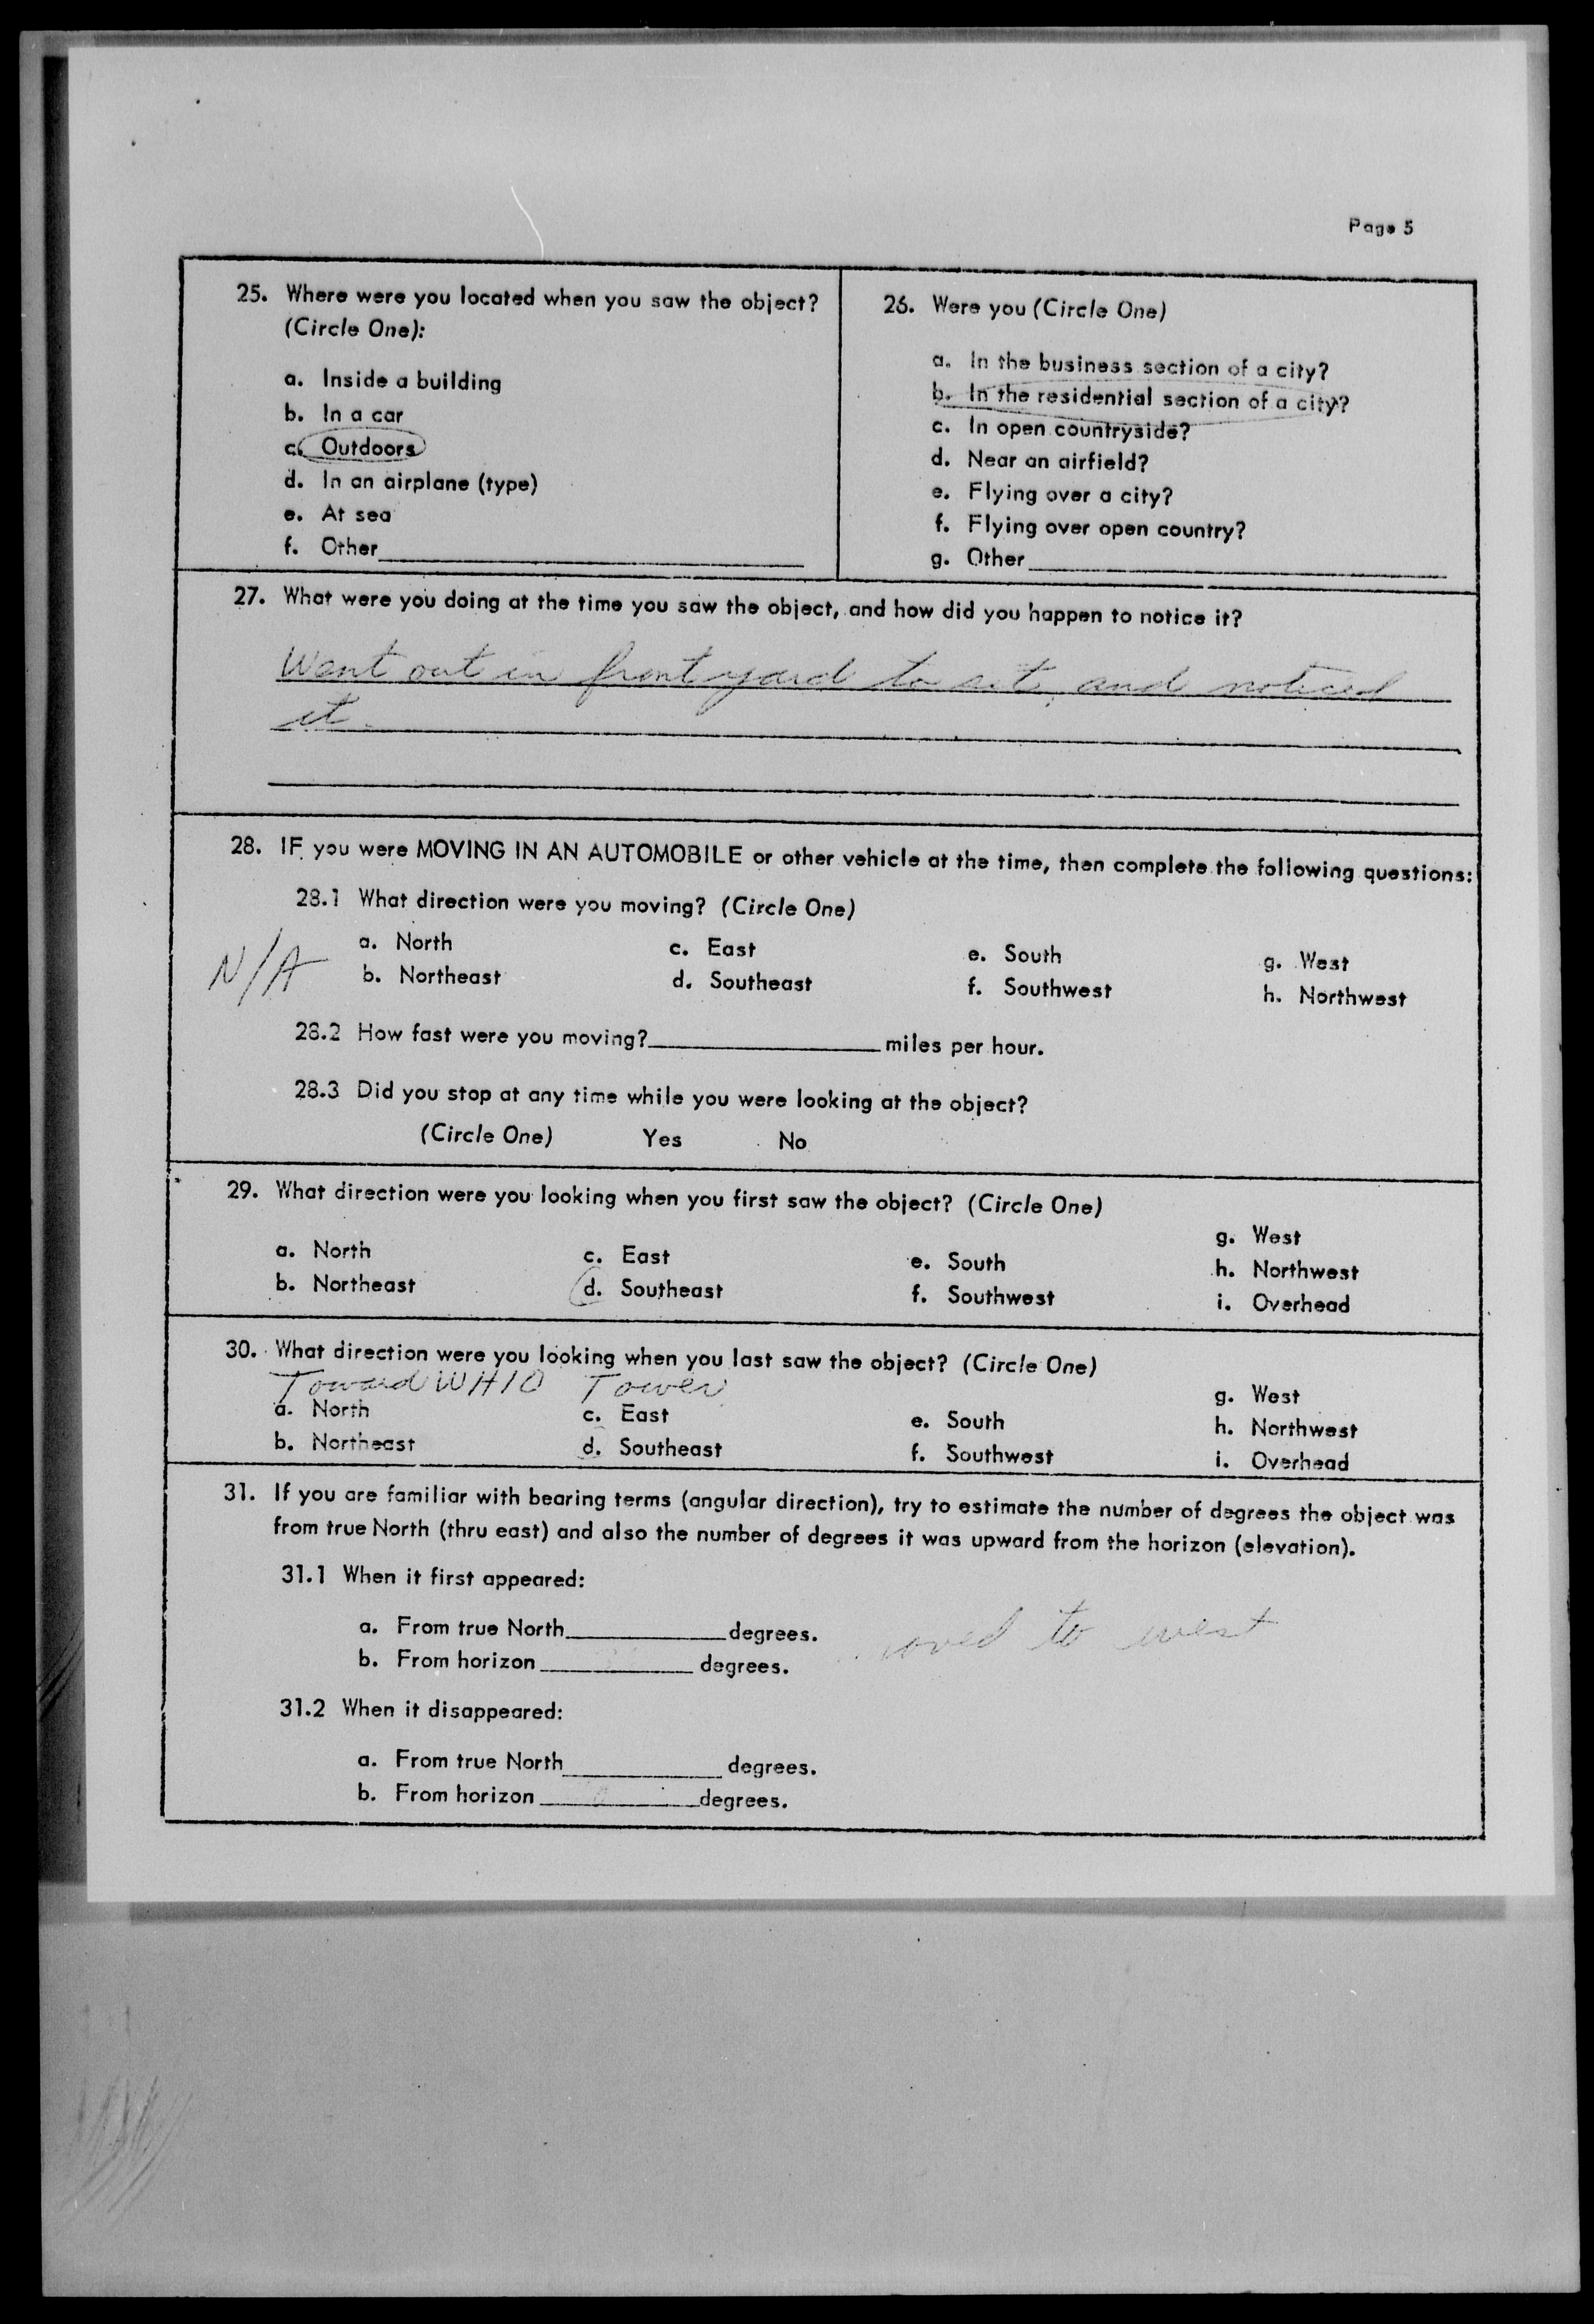 Page 5
25. Where were you located when you saw the object?
(Circle One):
a. Inside a building
b. In a car
c. Outdoors
d. In an airplane (type)
e. At sea
f. Other
26. Were you (Circle One)
a. In the business section of a city?
b. In the residential section of a city?
c. In open countryside?
d. Near an airfield?
e. Flying over a city?
f. Flying over open country?
g. Other
27. What were you doing at the time you saw the object, and how did you happen to notice it?
Went out in front yard to sit, and noticed
it.
28. IF you were MOVING IN AN AUTOMOBILE or other vehicle at the time, then complete the following questions:
28.1 What direction were you moving? (Circle One)
N/A
a. North c. East e. South g. West
b. Northeast d. Southeast f. Southwest h. Northwest
28.2 How fast were you moving? miles per hour.
28.3 Did you stop at any time while you were looking at the object?
(Circle One) Yes No
29. What direction were you looking when you first saw the object? (Circle One)
g. West
a. North c. East e. South h. Northwest
b. Northeast d. Southeast f. Southwest i. Overhead
30. What direction were you looking when you last saw the object? (Circle One)
Toward WHIO Tower
g. West
a. North c. East e. South h. Northwest
b. Northeast d. Southeast f. Southwest i. Overhead
31. If you are familiar with bearing terms (angular direction), try to estimate the number of degrees the object was
from true North (thru east) and also the number of degrees it was upward from the horizon (elevation).
31.1 When it first appeared:
a. From true North degrees.
to west
b. From horizon degrees.
31.2 When it disappeared:
a. From true North degrees.
b. From horizon degrees.